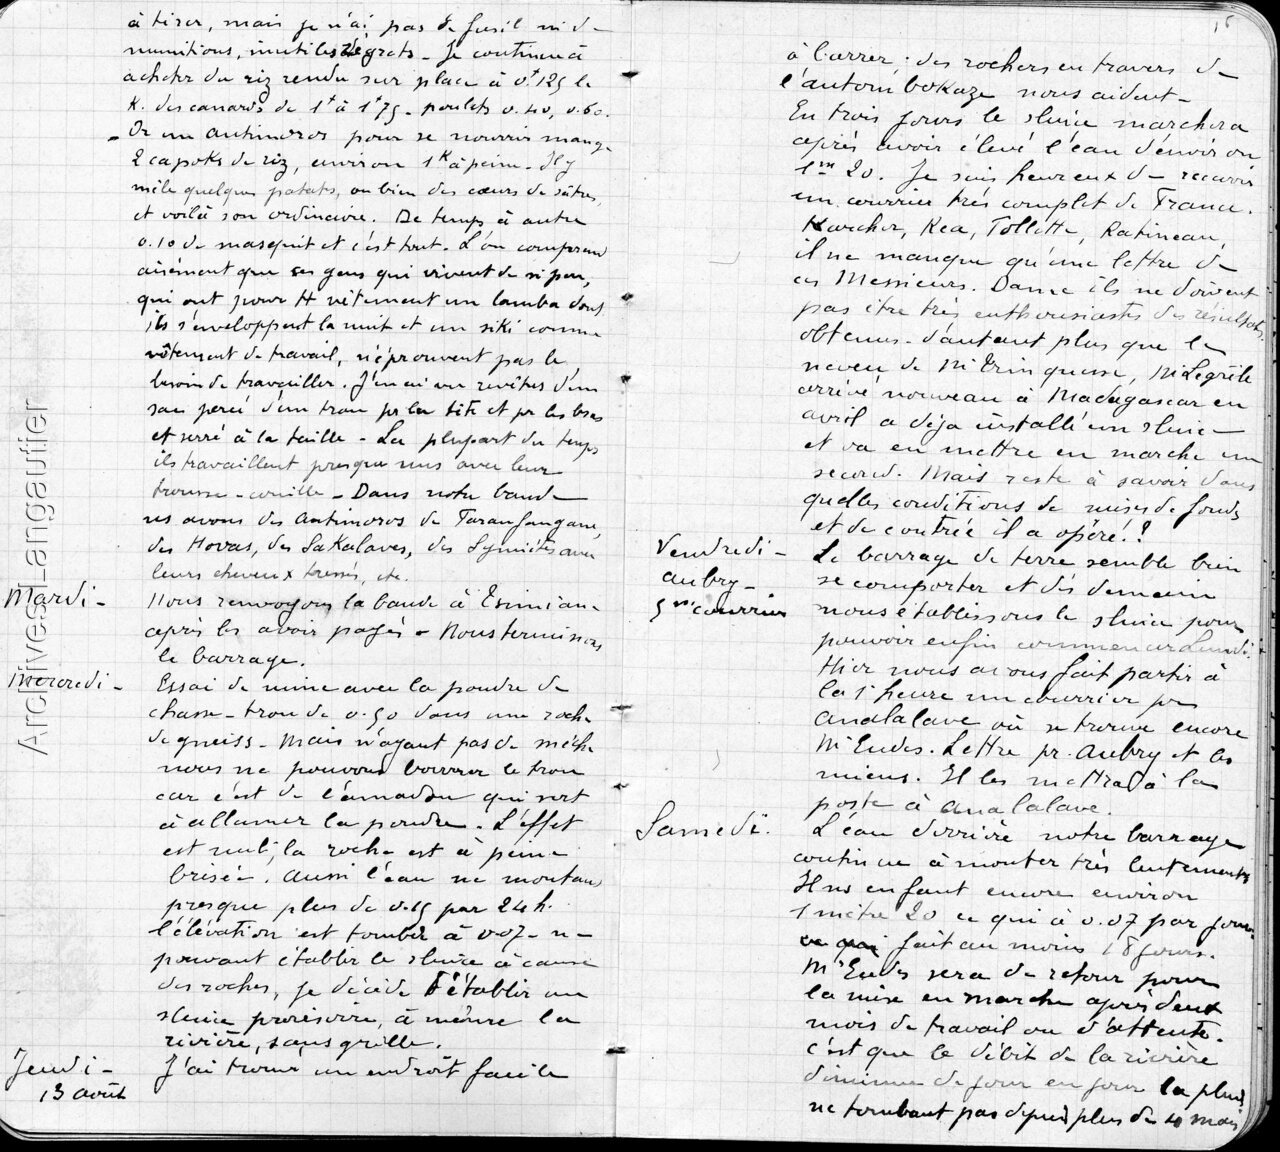 à tirer, mais je n'ai pas de fusil ni de
munitions, inutiles regrets - Je continue à
acheter du riz rendu sur place à 0f125 le
K. des canards de 1f à 1f75 - poulets 0.40, 0.60.
- Or un antimoros pour se nourrir mange
2 capoks de riz, environ 1K à peine - Il y
mêle quelques patates, ou bien des cœurs de
et voilà son ordinaire. De temps à autre
0.10 de masquit et c'est tout - L'on comprend
aisément que ces gens qui vivent de si peu,
qui ont pour tt vêtement un lamba dont
ils s'enveloppent la nuit et un siki comme
vêtement de travail, n'éprouvent pas le
besoin de travailler. J'en ai vu revêtus d'un
sac percé d'un trou pr la tête et pr les bras
et serré à la taille - La plupart du temps
ils travaillent presque nus avec leur
trousse-couille - Dans notre bande
ns avons des antimoros de Farafangane,
des Hovas, des Sakalaves, des avec
leurs cheveux tressés, etc.
Mardi - Nous renvoyons la bande à
après les avoir payés - Nous terminons
le barrage.
Mercredi - Essai de mine avec la poudre de
chasse - trou de 0.50 dans une roche
de gneiss - Mais n'ayant pas de mèche
nous ne pouvons bourrer le trou
car c'est de l'amadou qui sert
à allumer la poudre - L'effet
est nul, la roche est à peine
brisée. Aussi l'eau ne montant
presque plus de 0.15 par 24h.
l'élévation est tombée à 0.07 - ne
pouvant établir le sluice à cause
des roches, je décide d'établir un
sluice provisoire, à même la
rivière, sans grille.
Jeudi - J'ai trouvé un endroit facile
13 août
à barrer : des rochers en travers de
l'autom'bokaze nous aident -
En trois jours le sluice marchera
après avoir élevé l'eau d'environ
1m 20. Je suis heureux de recevoir
un courrier très complet de France.
Karcher, Kea, Tollette, Ratineau,
il ne manque qu'une lettre de
ces Messieurs. Dame ils ne doivent
pas être très enthousiastes des résultats
obtenus - d'autant plus que le
neveu de Mr Trinquesse, Mr Legrêle
arrivé nouveau à Madagascar en
avril a déjà installé un sluice
et va en mettre en marche un
second. Mais reste à savoir dans
quelles conditions de mises de fonds
et de contrée il a opéré!?
Vendredi - Le barrage de terre semble bien
Aubry - se comporter et dès demain
5e courrier nous établissons le sluice pour
pouvoir enfin commencer Lundi.
Hier nous avons fait partir à
la 1e heure un courrier pr
Analalave où se trouve encore
Mr Eudes. Lettre pr. Aubry et les
miens. Il les mettra à la
poste à Analalave.
Samedi. L'eau derrière notre barrage
continue à monter très lentement
Il ns en faut encore environ
1 mètre 20 ce qui à 0.07 par jour
fait au moins 18 jours.
Mr Eudes sera de retour pour
la mise en marche après deux
mois de travail ou d'attente.
c'est que le débit de la rivière
diminue de jour en jour la pluie
ne tombant pas depuis plus de 4 mois
Archives Langautier